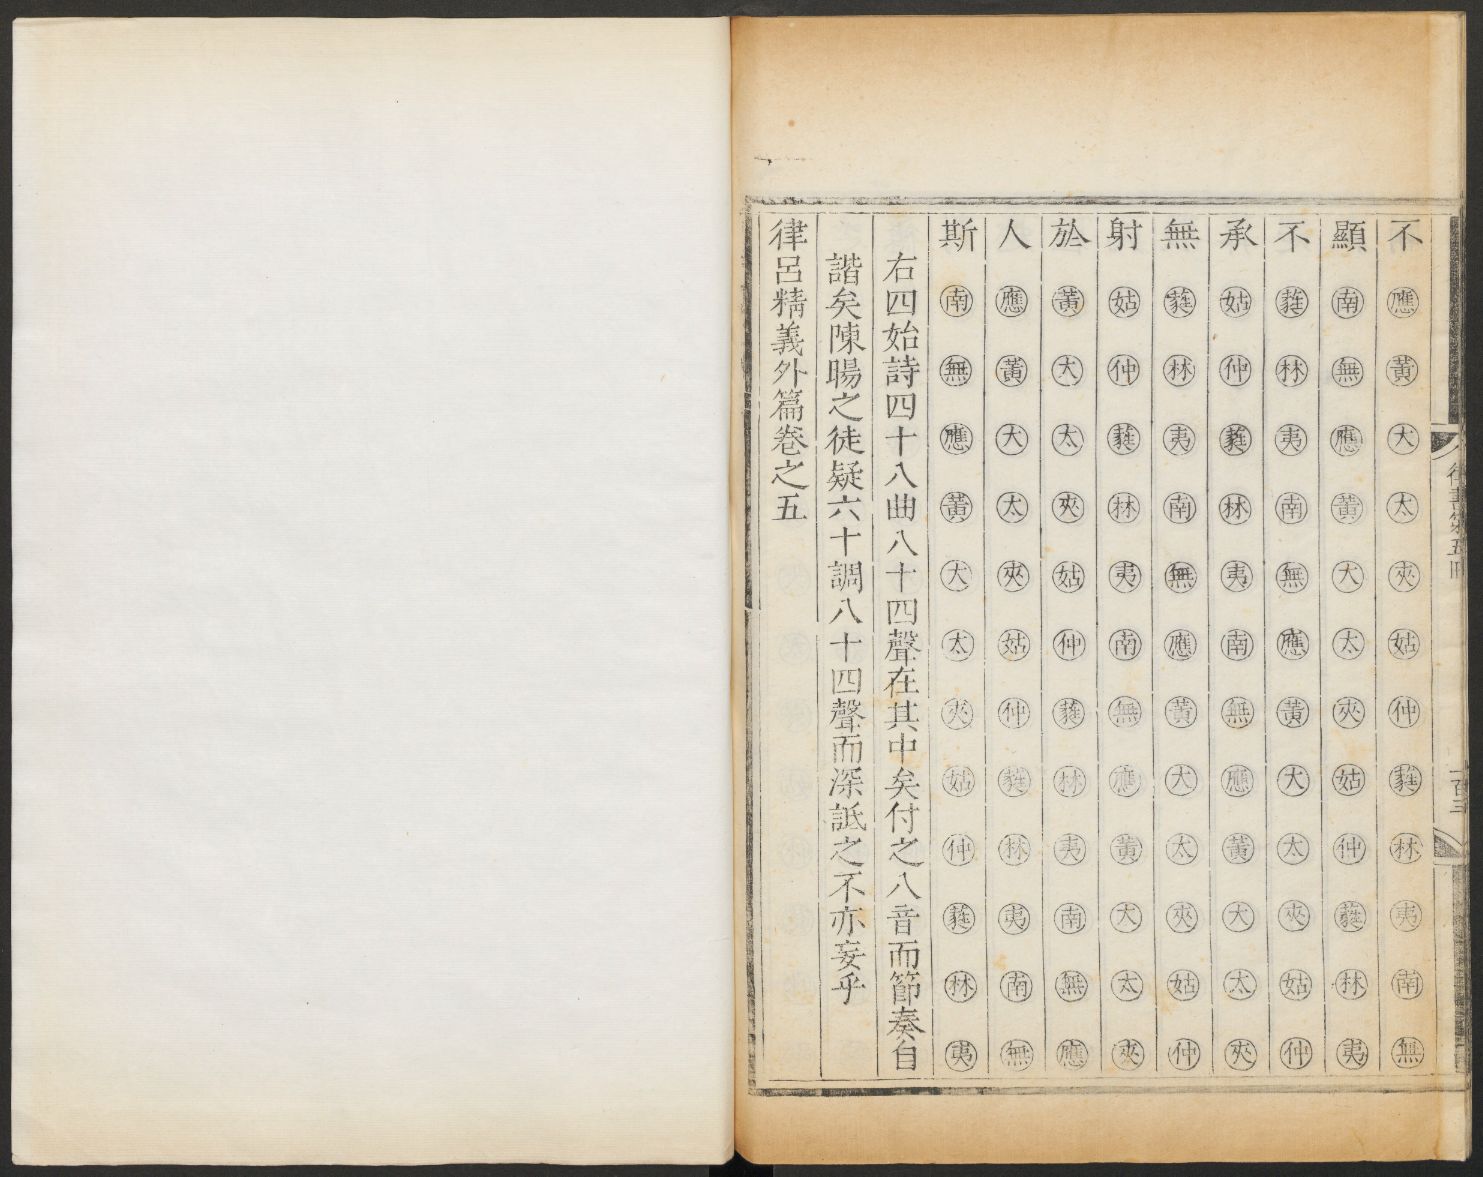 律書第五冊
一百三
不應黃大太夾姑仲蕤林夷南無
顯南無應黃大太夾姑仲蕤林夷
不蕤林夷南無應黃大太夾姑仲
承姑仲蕤林夷南無應黃大太夾
無蕤林夷南無應黃大太夾姑仲
射姑仲蕤林夷南無應黃大太夾
於黃大太夾姑仲蕤林夷南無應
人應黃大太夾姑仲蕤林夷南無
斯南無應黃大太夾姑仲蕤林夷
右四始詩四十八曲八十四聲在其中矣付之八音而節奏自
諧矣陳暘之徒疑六十調八十四聲而深詆之不亦妄乎
律呂精義外篇卷之五